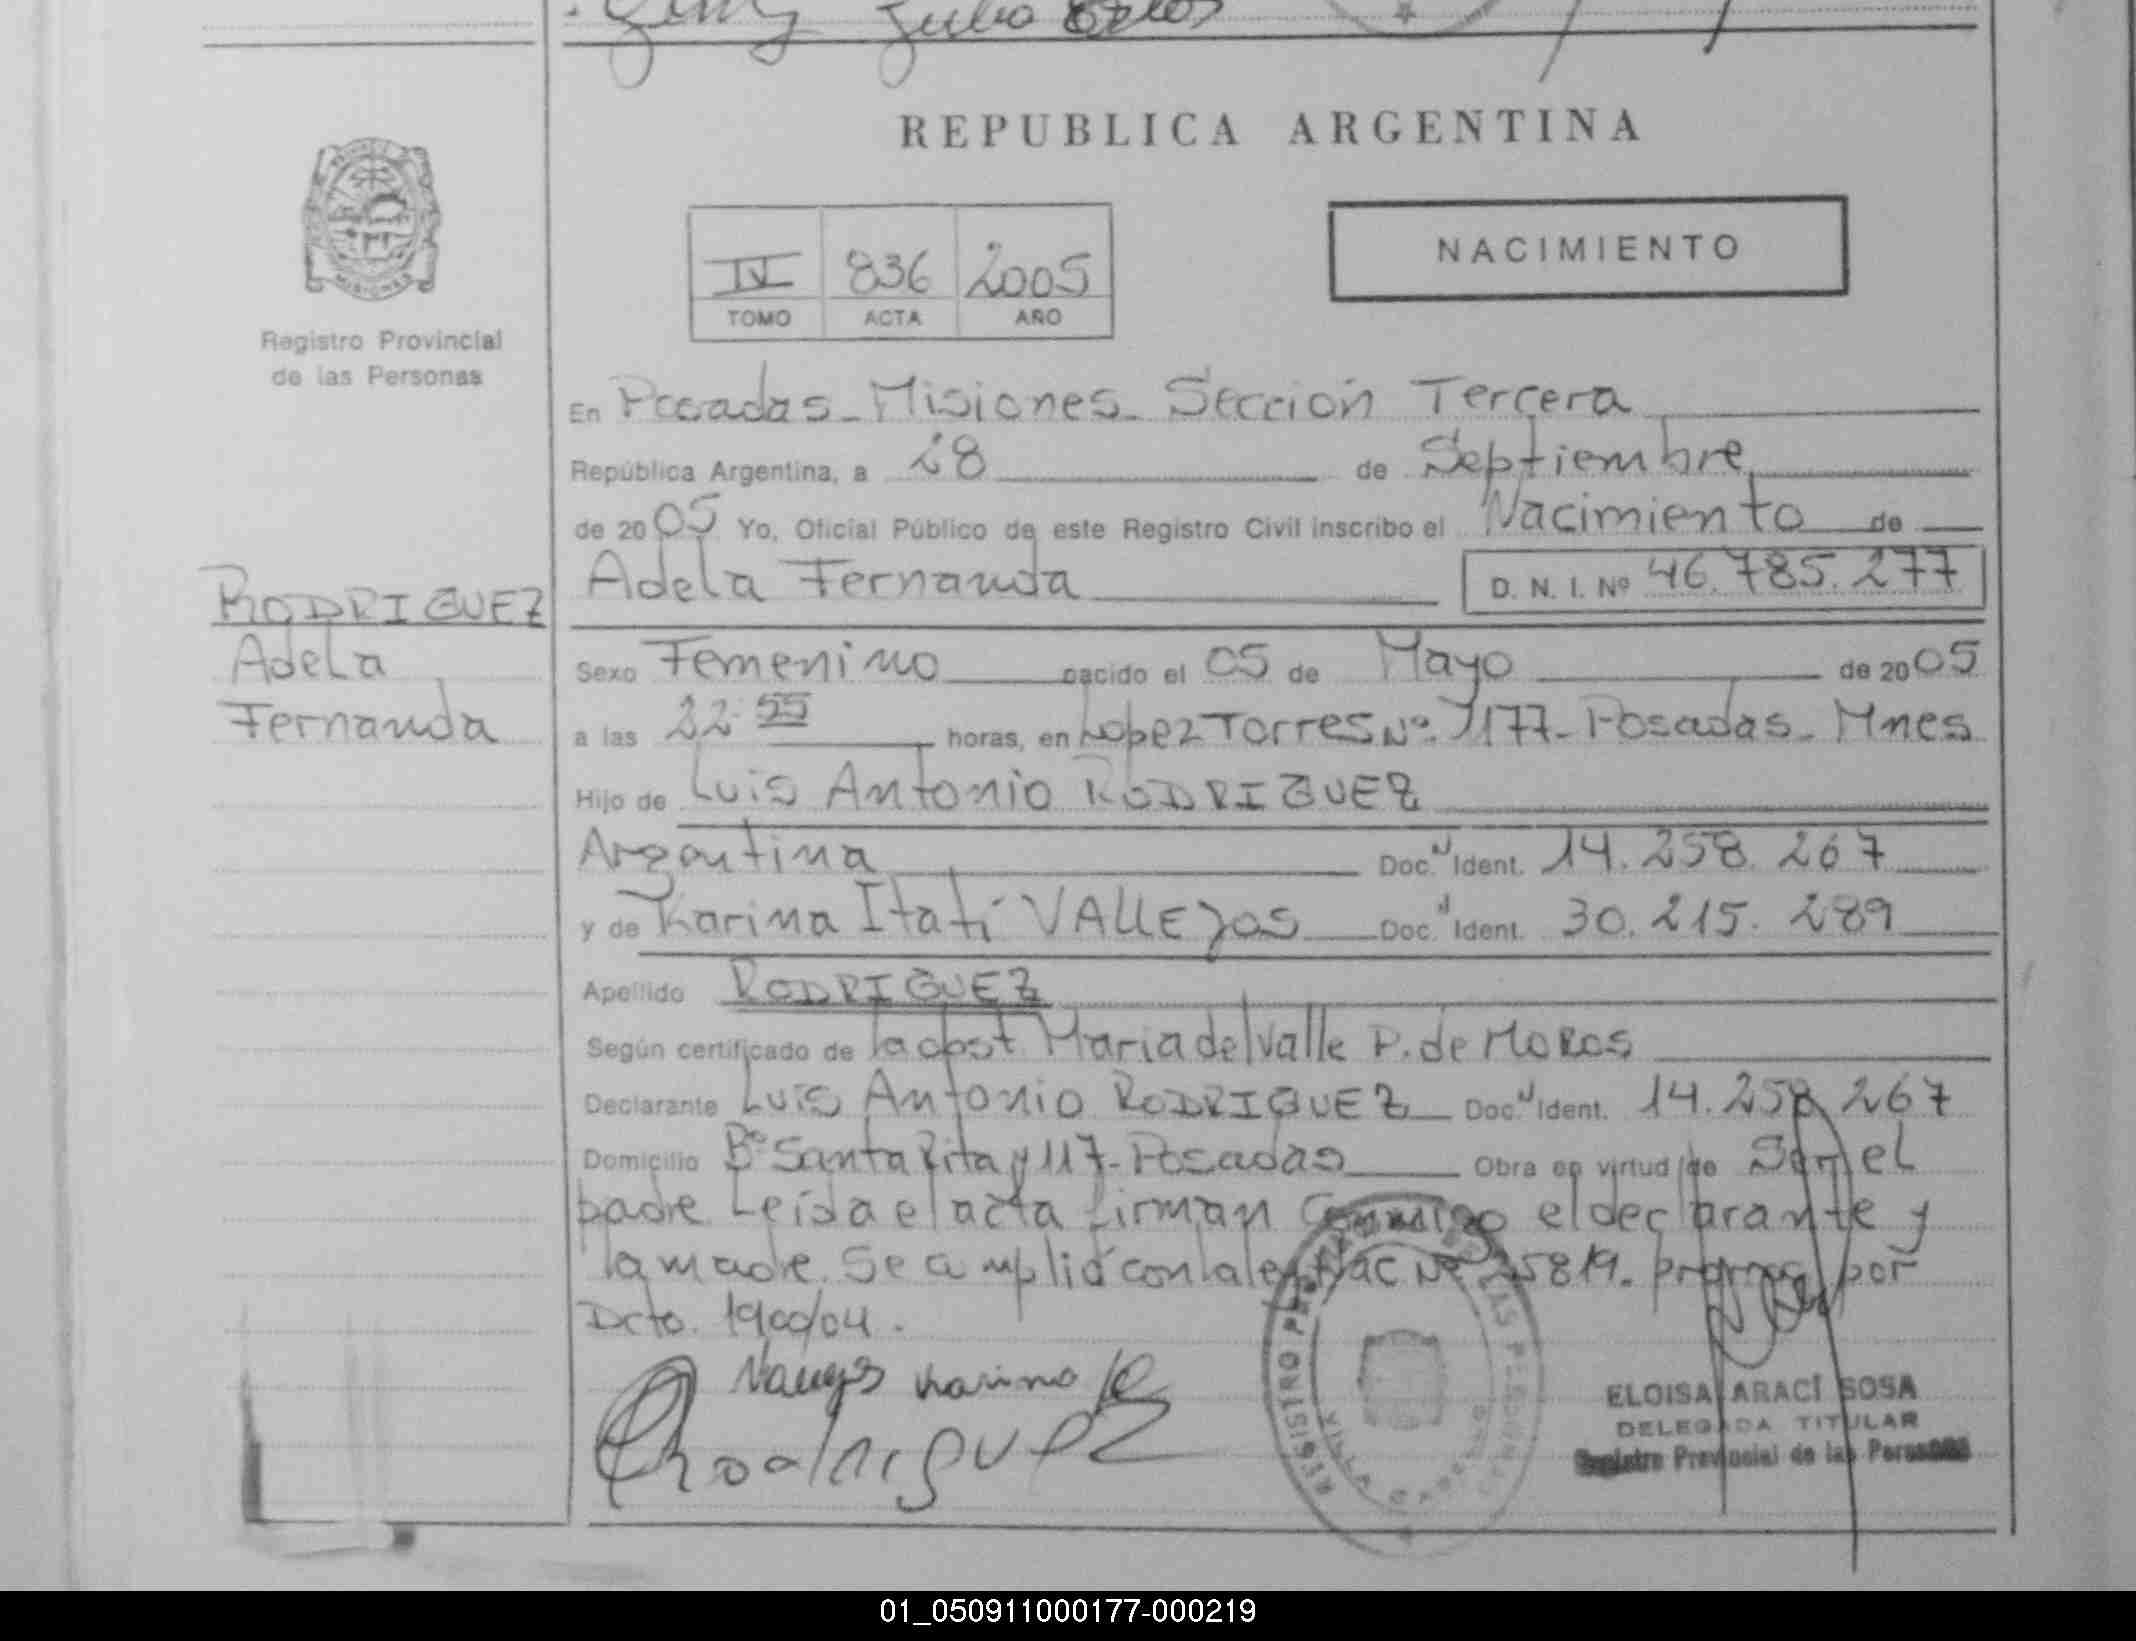 Julio
REPUBLICA ARGENTINA
NACIMIENTO
IV 836 2005
TOMO ACTA AÑO
MISIONES
Registro Provincial
de las Personas
En Posadas - Misiones - Sección Tercera
República Argentina, a 28 de Septiembre
de 2005 Yo, Oficial Público de este Registro Civil inscribo el Nacimiento de
Adela Fernanda D. N. I. Nº 46.785.277
RODRIGUEZ
Adela
Fernanda
Sexo Femenino nacido el 05 de Mayo de 2005
a las 22:55 horas, en Lopez Torres Nº 1177 - Posadas - Mnes
Hijo de Luis Antonio RODRIGUEZ
Argentina Doc. N Ident. 14.258.267
y de Karina Itatí VALLEJOS Doc. N Ident. 30.215.289
Apellido RODRIGUEZ
Según certificado de la obst Maria del Valle P. de MOROS
Declarante Luis Antonio RODRIGUEZ Doc. N Ident. 14.258.267
Domicilio Bº Santa Rita y 117 - Posadas Obra en virtud de Ser el
padre. Leída el acta firman conmigo el declarante y
la madre. Se cumplió con la ley Nac Nº 25819. por
Dcto. 1900/04.
Karina
Rodriguez
REGISTRO PROVINCIAL DE LAS PERSONAS
VILLA CABELLO
ELOISA ARACÍ SOSA
DELEGADA TITULAR
Registro Provincial de las Personas
01_050911000177-000219